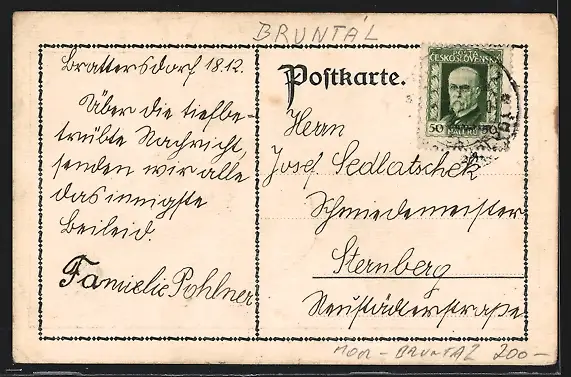 BRUNTÁL
Brattersdorf 18.12.
Über die tiefbe-
trübte Nachricht,
senden wir alle
das innigste
Beileid.
Familie Pohlner
Postkarte.
POŠTA
ČESKOSLOVENSKÁ
50 HALÉŘŮ 50
Herrn
Josef Sedlatschek
Schmiedemeister
Sternberg
Neustädterstraße
MOR - BRUNTÁL 200-